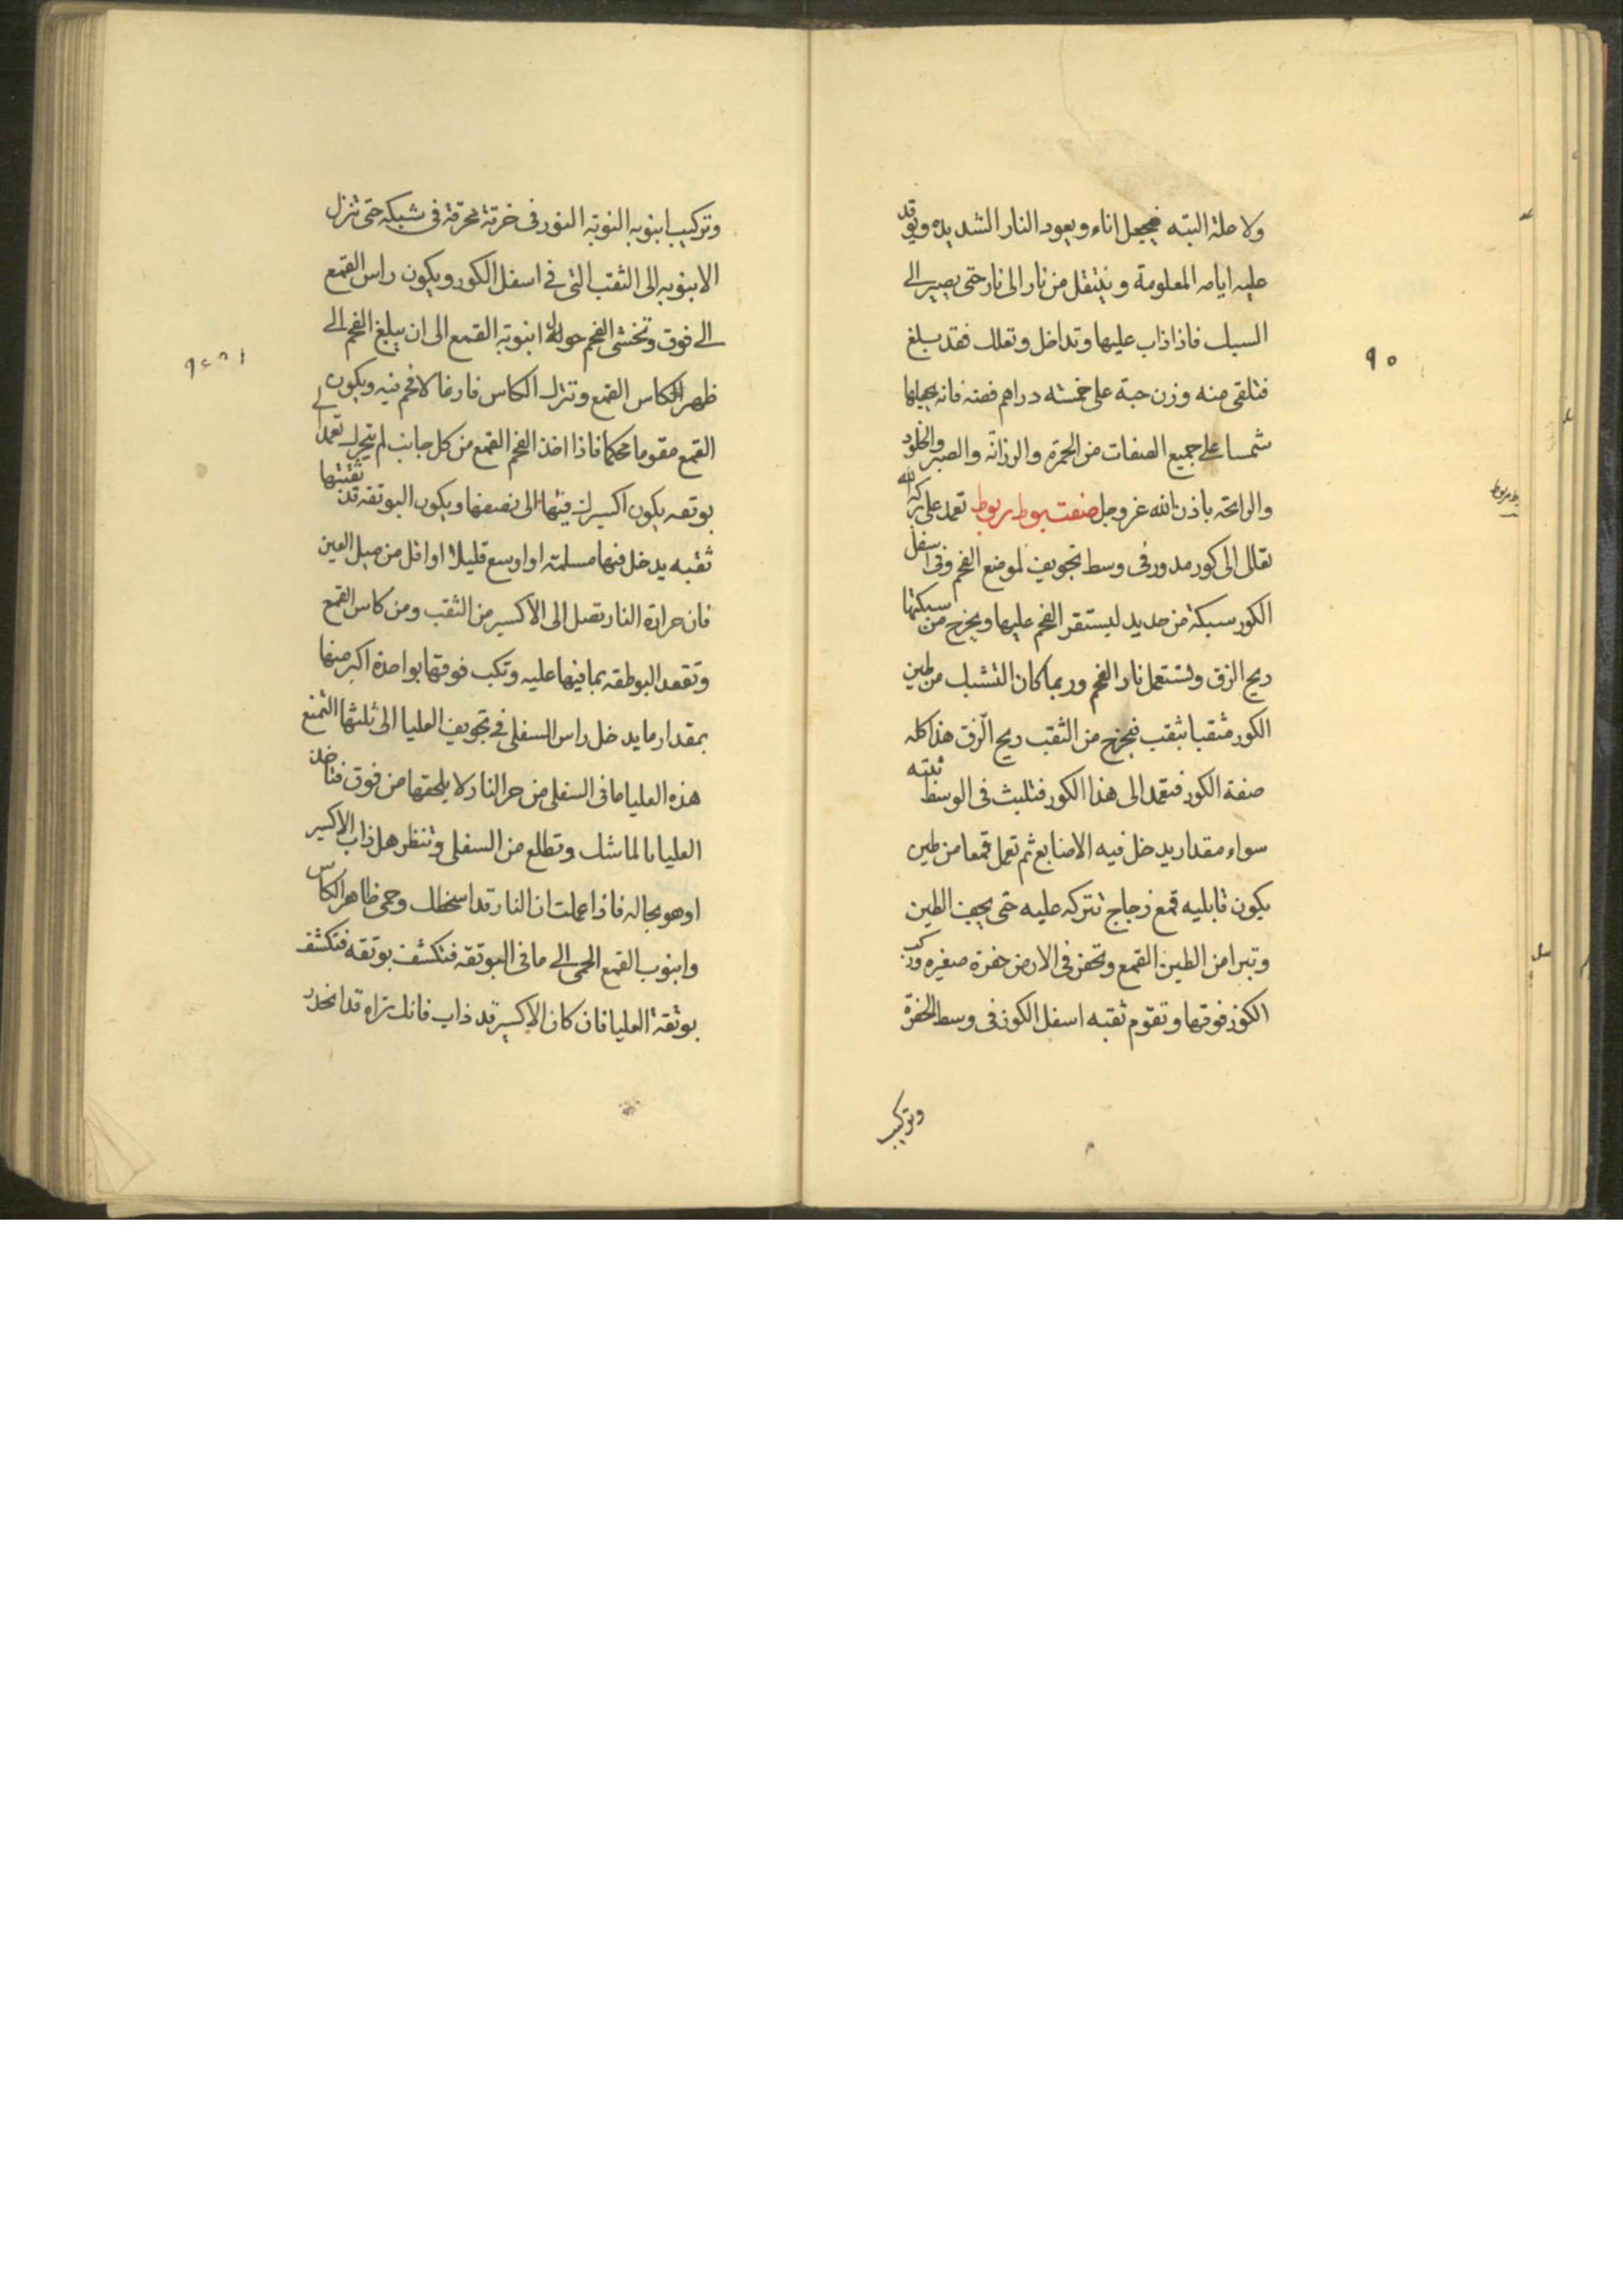 ولا علة البته فيجعل اناء ويعود النار الشديده ويوقد
عليه ايامه المعلومة وينتقل من نار الى نار حتى يصير الى
السبك فاذا ذاب عليها وتداخل وتعلك فقد بلغ
فتلقى منه وزن حبة على خمسته دراهم فضه فانه يجعلها
شمسا على جميع الصفات من الحمرة والرزانة والصبر والخلود
والرايحته باذن الله عز وجل صفت بوط بربوط تعمد على بركة الله
تعالى الى كور مدور فى وسط تجويف لموضع الفحم وفى اسفل
الكور سبكة من حديد ليستقر الفحم عليها ويخرج من سبكتها
ريح الزق وتستعمل نار الفحم وربما كان التشبك من طين
الكور مثقبا بثقب فيخرج من الثقب ريح الزق هذا كله
صفة الكور فتعمد الى هذا الكور فتلبث فى الوسط ثبته
سواء مقدار يدخل فيه الاصابع ثم تعمل قمعا من طين
يكون قابليه قمع زجاج تتركه عليه حتى يجف الطين
وتبرا من الطين القمع وتحفر فى الارض حفرة صغيره وركب
الكور فوقها وتقوم ثقبه اسفل الكور فى وسط الحفرة
وتركيب
٩٠
بوط بربوط
وتركيب ابنوبه النوبة النور فى خرتة محرقة فى شبكه حتى تنزل
الابنوبه الى الثقب التى فى اسفل الكور ويكون راس القمع
الى فوق وتحشى الفحم حول ابنوبة القمع الى ان يبلغ الفحم الى
ظهر الكاس القمع وتترك الكاس فارغا لا فحم فيه ويكون
القمع مقوما محكما فاذا اخذ الفحم القمع من كل جانب لم يتحرك تعمد الى
بوتقه يكون اكسيرك فيها الى نصفها ويكون البوتقه قد ثقبتها
ثقبه يدخل فيها مسلمته او اوسع قليلا او اقل من ميل العين
فان حرارة النار تصل الى الاكسير من الثقب ومن كاس القمع
وتقعد البوطقه بما فيها عليه وتكب فوقها بواحدة اكبر منها
بمقدار ما يدخل راس السفلى فى تجويف العليا الى ثلثها التمنع
هذه العليا ما فى السفلى من حر النار لا يلحقها من فوق فتاخذ
العليا بالماشك وتطلع من السفلى وتنظر هل ذاب الاكسير
او هو بحاله فاذا علمت ان النار قد اسخطك وحمى ظاهر الكاس
وابنوب القمع الحمى الى ما فى البوتقه فتكشف بوتقه فتكشف
بوتقة العليا فان كان الاكسير قد ذاب فانك تراه قد انحدر